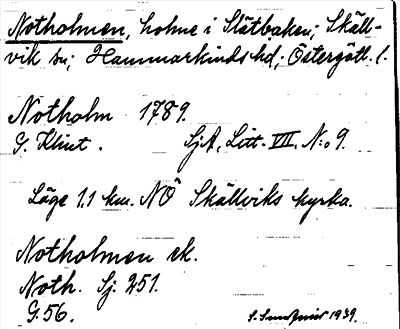 Notholmen, holme i Slätbaken; Skäll-
vik sn; Hammarkinds hd; Östergötl. l.
Notholm 1789.
G. Klint. SjA, Litt. VII, N:o 9.
Läge 1.1 km. NÖ Skällviks kyrka.
Notholmen ek.
Noth. Sj. 251.
G. 56. 1939.